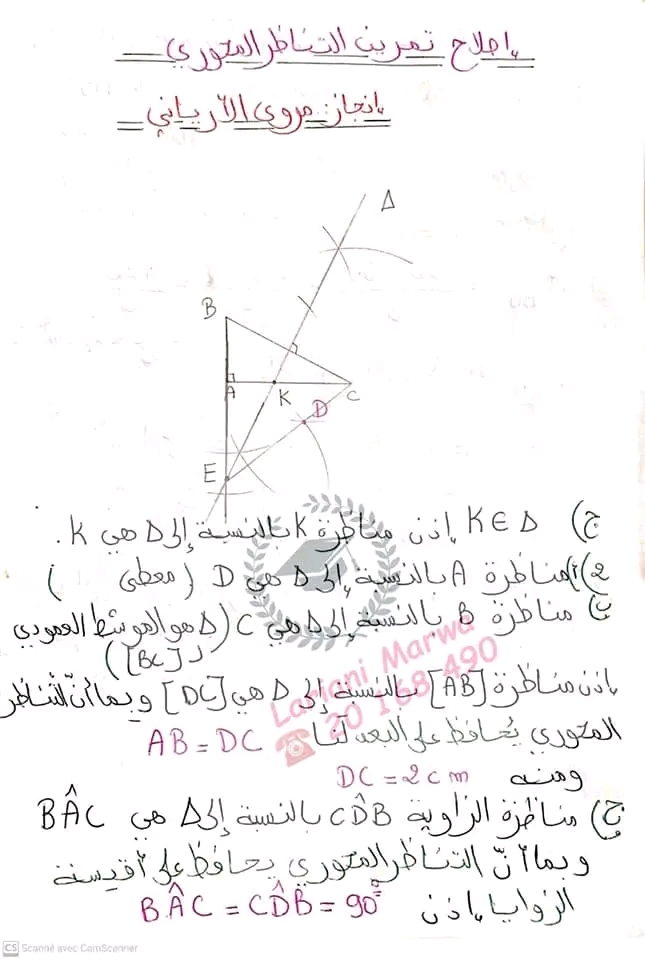 إصلاح تمرين التناظر المحوري
إنجاز: مروى الأرياني
Δ
B
A
K
C
D
E
ج) K∈Δ إذن مناظرة K بالنسبة إلى Δ هي K.
2) أ) مناظرة A بالنسبة إلى Δ هي D (معطى)
ب) مناظرة B بالنسبة إلى Δ هي C (Δ هو الموسط العمودي
لـ [BC])
إذن مناظرة [AB] بالنسبة إلى Δ هي [DC] وبما أنّ التناظر
المحوري يُحافظ على البعد لنا AB = DC
ومنه DC = 2cm
ج) مناظرة الزاوية CD̂B بالنسبة إلى Δ هي BÂC
وبما أنّ التناظر المحوري يحافظ على أقيسة
الزوايا إذن BÂC = CD̂B = 90°
Lariani Marwa
☎ 20 168 490
CS Scanné avec CamScanner